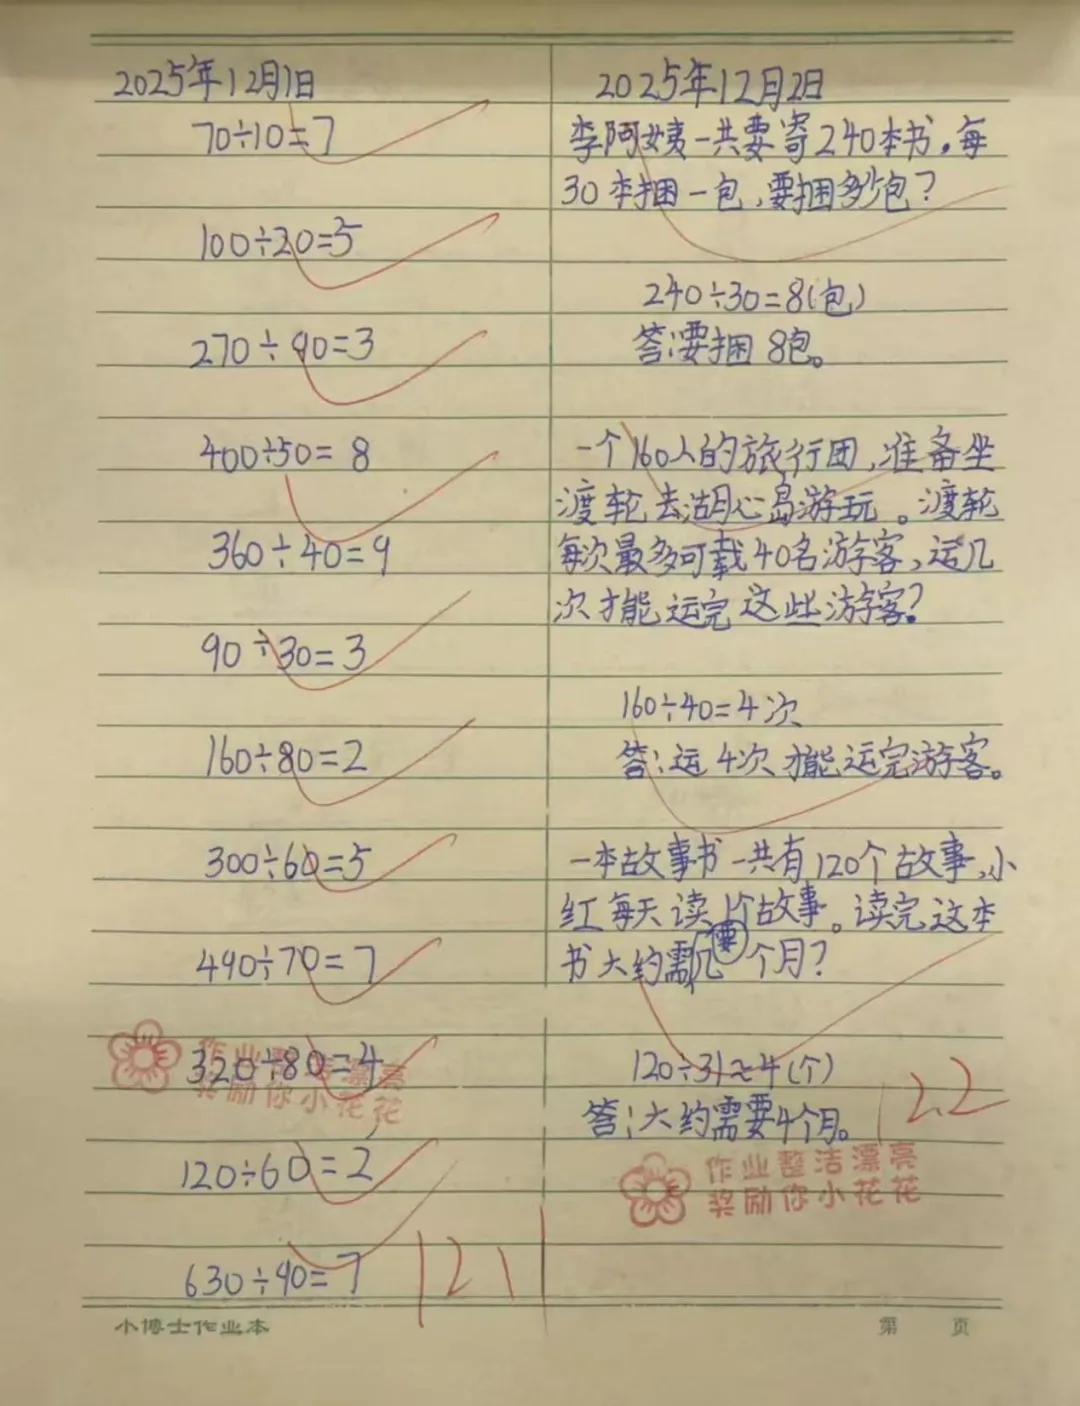 2025年12月1日
70÷10=7
100÷20=5
270÷90=3
400÷50=8
360÷40=9
90÷30=3
160÷80=2
300÷60=5
490÷70=7
320÷80=4
作业整洁漂亮
奖励你小花花
120÷60=2
630÷90=7
12.1
2025年12月2日
李阿姨一共要寄240本书,每
30本捆一包,要捆多少包?
240÷30=8(包)
答:要捆8包。
一个160人的旅行团,准备坐
渡轮去湖心岛游玩。渡轮
每次最多可载40名游客,运几
次才能运完这些游客?
160÷40=4次
答:运4次才能运完游客。
一本故事书一共有120个故事,小
红每天读1个故事。读完这本
书大约需要几个月?
120÷31≈4(个)
答:大约需要4个月。
12.2
作业整洁漂亮
奖励你小花花
小博士作业本
第 页